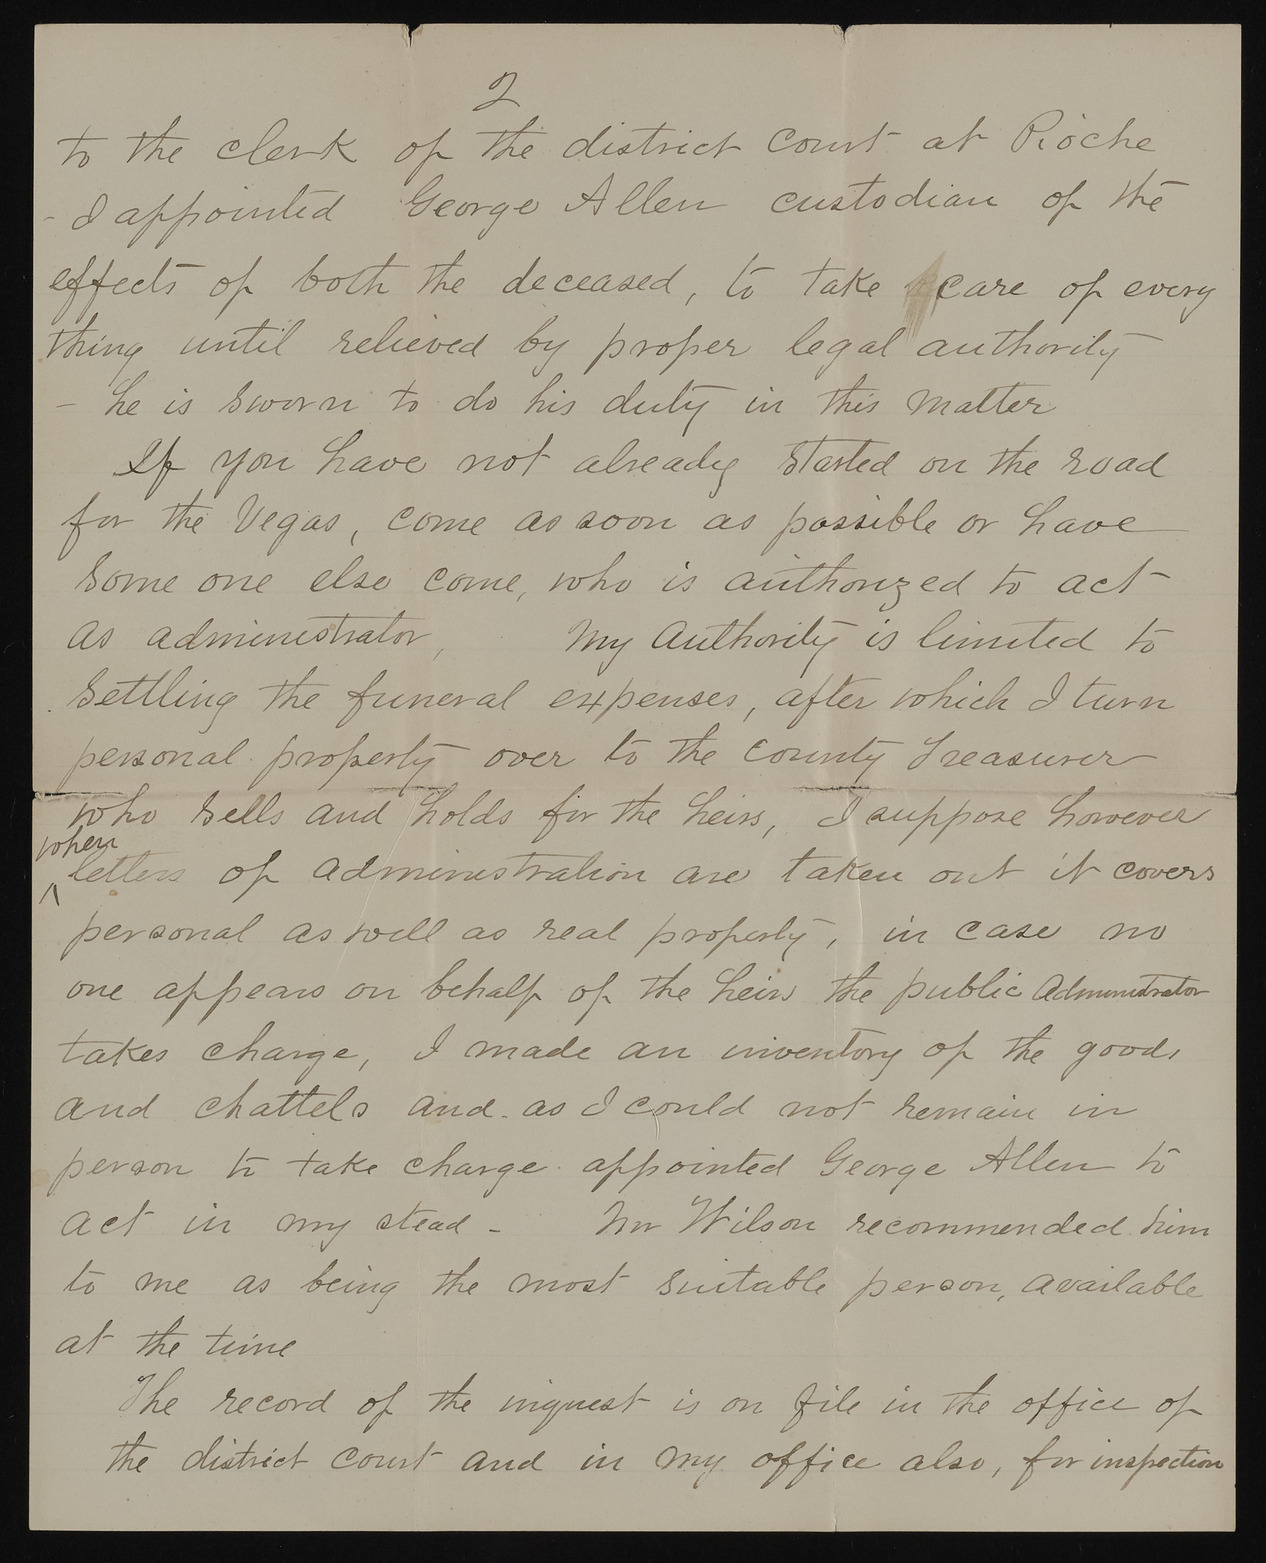 2
to the clerk of the district court at Pioche
- I appointed George Allen custodian of the
effects of both the deceased, to take care of every
thing until relieved by proper legal authority
- he is sworn to do his duty in this matter
If you have not already started on the road
for the Vegas, come as soon as possible or have
some one else come, who is authorized to act
as administrator, My authority is limited to
settling the funeral expenses, after which I turn
personal property over to the county Treasurer
who sells and holds for the heirs, I suppose however
when
^ letters of administration are taken out it covers
personal as well as real property, in case no
one appears on behalf of the heirs the public Administrator
takes charge, I made an inventory of the goods
and chattels and as I could not remain in
person to take charge appointed George Allen to
act in my stead - Mr Wilson recommended him
to me as being the most suitable person, available
at the time
The record of the inquest is on file in the office of
the district court and in my office also, for inspection